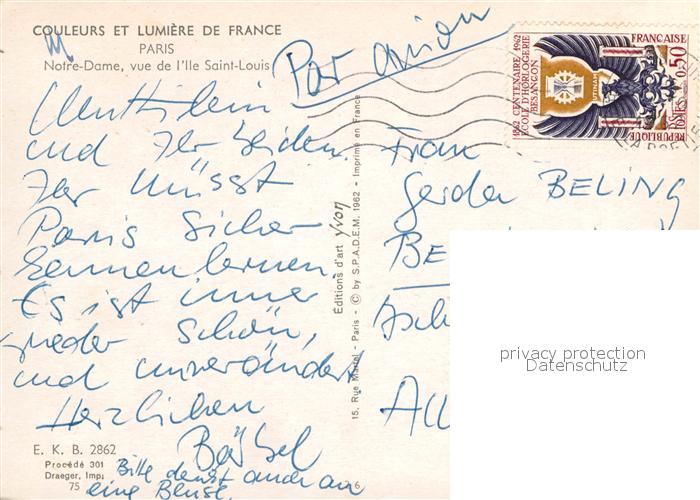 COULEURS ET LUMIÈRE DE FRANCE
PARIS
Notre-Dame, vue de l'Ile Saint-Louis
Par avion
1862 CENTENAIRE 1962
ÉCOLE D'HORLOGERIE
BESANÇON
FRANÇAISE
0,50
POSTES
RÉPUBLIQUE
UTINAM
und Ihr beiden.
Ihr müsst
Paris sicher
kennenlernen.
Es ist immer
wieder schön,
und unverändert.
Herzlichen
Bärbel
Bitte denkt auch an
eine Bluse.
Frau
Gerda BELING
BE
Asch
All
Éditions d'art Yvon
15, Rue Martel - Paris - © by S.P.A.D.E.M. 1962 - Imprimé en France
E. K. B. 2862
Procédé 301
Draeger, Imp.
75
6
privacy protection
Datenschutz